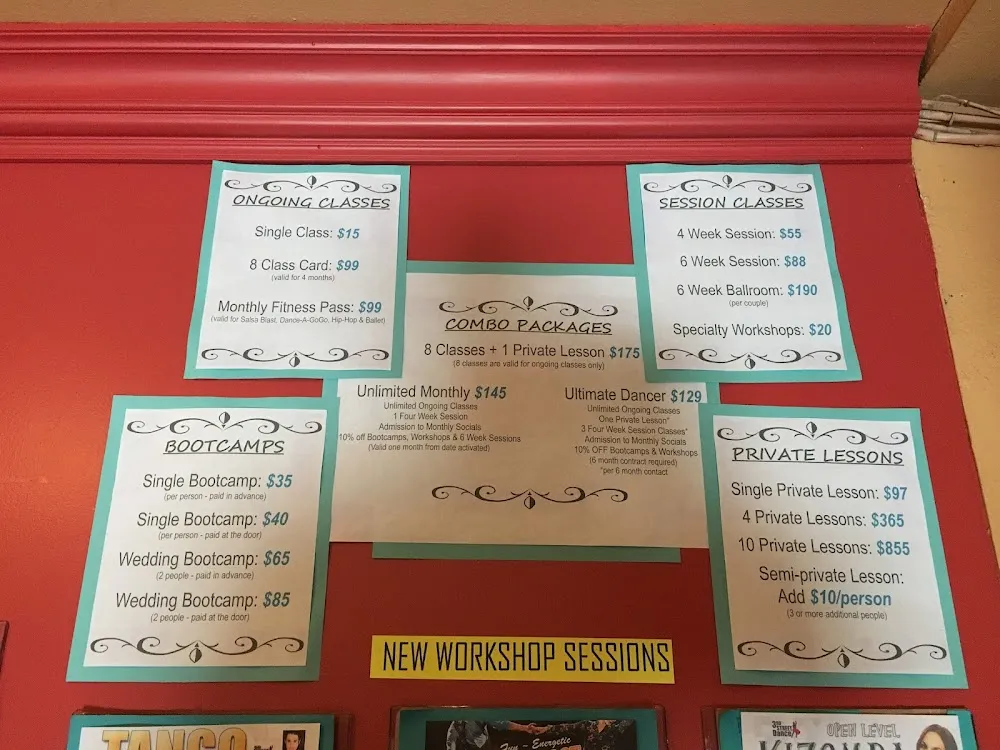 ONGOING CLASSES
Single Class: $15
8 Class Card: $99
(valid for 4 months)
Monthly Fitness Pass: $99
(valid for Salsa Blast, Dance-A-GoGo, Hip-Hop & Ballet)
SESSION CLASSES
4 Week Session: $55
6 Week Session: $88
6 Week Ballroom: $190
(per couple)
Specialty Workshops: $20
COMBO PACKAGES
8 Classes + 1 Private Lesson $175
(8 classes are valid for ongoing classes only)
Unlimited Monthly $145
Unlimited Ongoing Classes
1 Four Week Session
Admission to Monthly Socials
10% off Bootcamps, Workshops & 6 Week Sessions
(Valid one month from date activated)
Ultimate Dancer $129
Unlimited Ongoing Classes
One Private Lesson*
3 Four Week Session Classes*
Admission to Monthly Socials
10% OFF Bootcamps & Workshops
(6 month contract required)
*per 6 month contact
BOOTCAMPS
Single Bootcamp: $35
(per person - paid in advance)
Single Bootcamp: $40
(per person - paid at the door)
Wedding Bootcamp: $65
(2 people - paid in advance)
Wedding Bootcamp: $85
(2 people - paid at the door)
PRIVATE LESSONS
Single Private Lesson: $97
4 Private Lessons: $365
10 Private Lessons: $855
Semi-private Lesson:
Add $10/person
(3 or more additional people)
NEW WORKSHOP SESSIONS
TANGO
Fun - Energetic
3RD STREET
DANCE
OPEN LEVEL